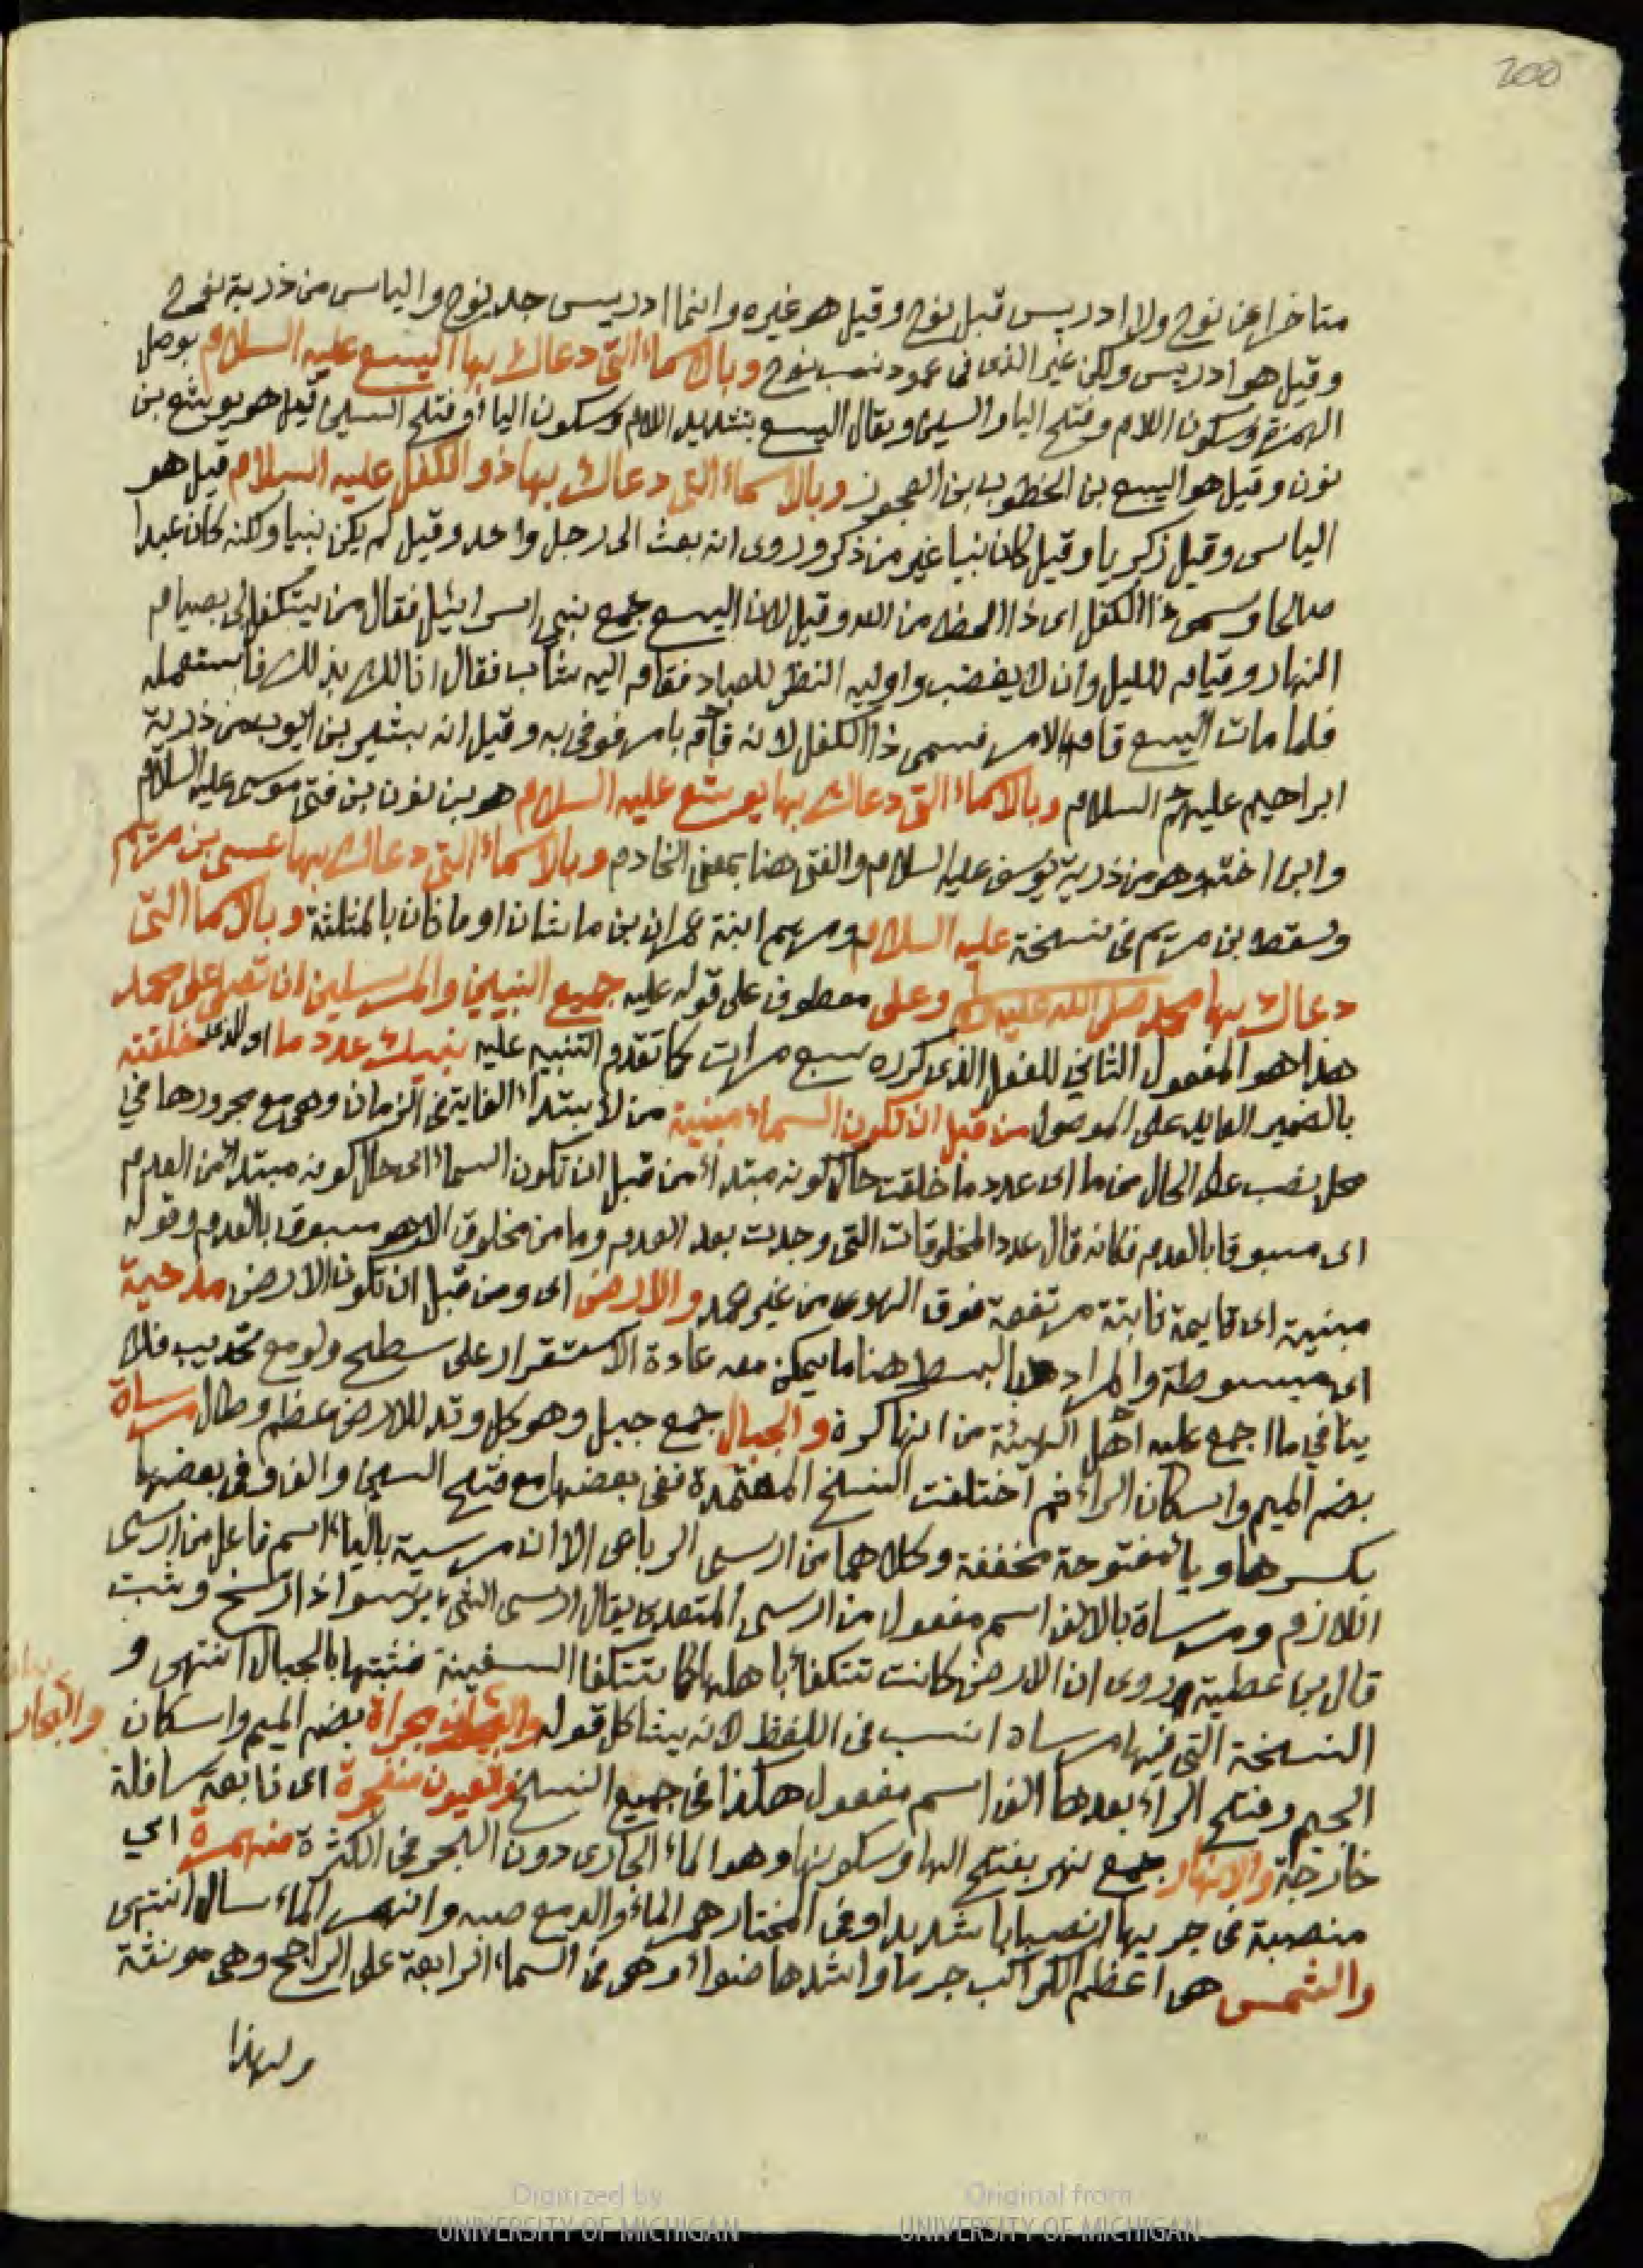 200
متاخرا عن نوح ولا ادريس قبل نوح وقيل هو غيره وانما ادريس جد نوح والياس من ذرية نوح
وقيل هو ادريس ولكن غير الذى فى عمود نسب نوح وبالاسماء التى دعاك بها اليسع عليه السلام بوصل
الهمزة وسكون اللام وفتح اليا والسين ويقال اليسع بتشديد اللام وسكون الياء وفتح السين قيل هو يوشع بن
نون وقيل هو اليسع بن اخطوب بن العجوز وبالاسماء التى دعاك بها ذو الكفل عليه السلام قيل هو
الياس وقيل زكريا وقيل كان نبيا غير من ذكر وروى انه بعث الى رجل واحد وقيل لم يكن نبيا ولكنه كان عبدا
صالحا وسمى ذا الكفل اى ذا الحظ من الله وقيل لان اليسع جمع بنى اسرائيل فقال من يتكفل لى بصيام
النهار وقيام الليل وان لا يغضب واوليه النظر للعباد فقام اليه شاب فقال انا لك بذلك فاستعمله
فلما مات اليسع قام بالامر فسمى ذا الكفل لانه قام بامر فوفى به وقيل انه بشير بن ايوب من ذرية
ابراهيم عليهم السلام وبالاسماء التى دعاك بها يوشع عليه السلام هو بن نون بن فتى موسى عليه السلام
وابن اخته وهو من ذرية يوسف عليه السلام والفتى هنا بمعنى الخادم وبالاسماء التى دعاك بها عيسى بن مريم
وسقط بن مريم فى نسخة عليه السلام ومريم ابنة عمران بن ماشان او ماثان بالمثلثة وبالاسما التى
دعاك بها محمد صلى الله عليه وعلى معطوف على قوله عليه جميع النبيين والمرسلين ان تصلى على محمد
هذا هو المفعول الثاني للفعل الذى كرره سبع مرات كما تقدم التنبيه عليه نبيك عدد ما اى الذى خلقته
بالضمير العايد على الموصول من قبل ان تكون السماء مبنية من لابتداء الغاية فى الزمان وهى مع مجرورها في
محل نصب على الحال من ما اى عدد ما خلقت حال كونه مبتداء من قبل ان تكون السماء اى حال كونه مبتداء من العدم
اى مسبوقا بالعدم فكانه قال عدد المخلوقات التى وجدت بعد العدم وما من مخلوق الا هو مسبوق بالعدم وقوله
مبنية اى قايمة ثابتة مرتفعة فوق الهوى من غير عمد والارض اى ومن قبل ان تكون الارض مدحية
اى مبسوطة والمراد بالبسط هنا ما يمكن معه عادة الاستقرار على سطح ولو مع تحديب فلا
ينافي ما اجمع عليه اهل الهيئة من انها كرة والجبال جمع جبل وهو كل وتد للارض عظم وطال مرساة
بضم الميم واسكان الراء ثم اختلفت النسخ المعتمدة ففى بعضها مع فتح السين والف وفى بعضها
بكسرها ويا مفتوحة مخففة وكلاهما من ارسى الرباعى الا ان مرسية بالياء اسم فاعل من ارسى
اللازم ومرساة بالالف اسم مفعول من ارسى المتعدى يقال ارسى الشى يرسوا اذا رسخ وثبت
قال بن عطية وروى ان الارض كانت تتكفأ باهلها كما تتكفا السفينة فثبتها بالجبال انتهى و
النسخة التى فيها مرساة انسب فى اللفظ لانه يشاكل قوله مجراة بضم الميم واسكان والبحار
الجيم وفتح الراء بعدها الف اسم مفعول هكذا فى جميع النسخ والعيون منفجرة اى نابعة سافلة
خارجة والانهار جمع نهر بفتح الها وسكونها وهو الماء الجارى دون البحر فى الكثرة منهمرة اي
منصبة فى جريها انصبابا شديدا وفى المختار همر الماء والدمع صبه وانهمر الماء سال انتهى
والشمس هى اعظم الكواكب جرما واشدها ضواء وهى فى السماء الرابعة على الراجح وهى مونثة
ولهذا
Digitized by Original from
UNIVERSITY OF MICHIGAN UNIVERSITY OF MICHIGAN